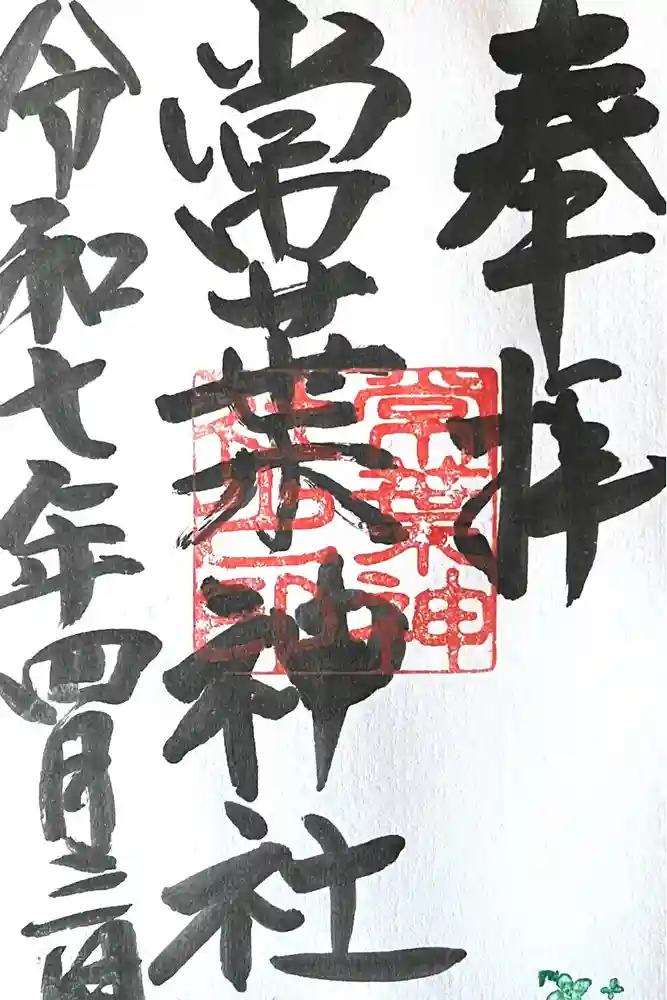 奉拝
常葉神社
令和七年四月三日
常葉神
社之印